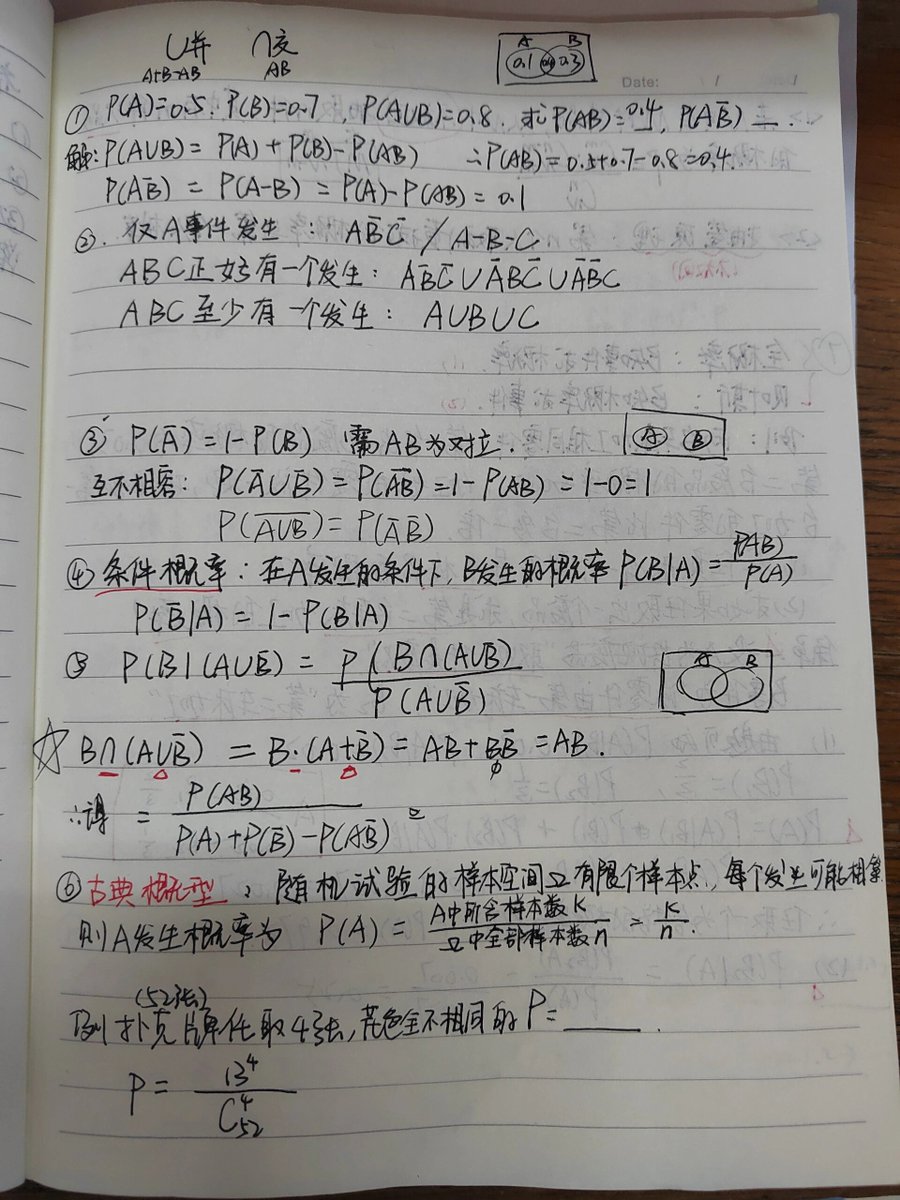 ∪并 ∩交
A+B-AB AB
A B
0.1 0.4 0.3
Date: / /
① P(A)=0.5. P(B)=0.7, P(A∪B)=0.8. 求P(AB)=0.4, P(AB̄) __.
解: P(A∪B) = P(A) + P(B) - P(AB) ∴P(AB) = 0.5+0.7-0.8=0.4.
P(AB̄) = P(A-B) = P(A)-P(AB) = 0.1
②. 仅A事件发生: AB̄C̄ / A-B-C
ABC正好有一个发生: AB̄C̄∪ĀBC̄∪ĀB̄C
ABC至少有一个发生: A∪B∪C
③ P(Ā) = 1-P(B) 需AB为对立.
A B
互不相容: P(Ā∪B̄) = P(\overline{AB}) = 1-P(AB) = 1-0=1
P(\overline{A∪B}) = P(ĀB̄)
④ 条件概率: 在A发生的条件下, B发生的概率 P(B|A) = P(AB)/P(A)
P(B̄|A) = 1-P(B|A)
⑤ P(B|(A∪B̄) = P(B∩(A∪B̄)/P(A∪B̄)
A B
☆ B∩(A∪B̄) = B·(A+B̄) = AB+BB̄ = AB.
φ
∴得 = P(AB)/P(A)+P(B̄)-P(AB̄) =
⑥ 古典概型: 随机试验的样本空间Ω有限个样本点, 每个发生可能相等
则A发生概率为 P(A) = A中所含样本数K/Ω中全部样本数n = K/n.
(52张)
例 扑克牌任取4张, 花色全不相同的P=____.
P = 13⁴/C⁴₅₂